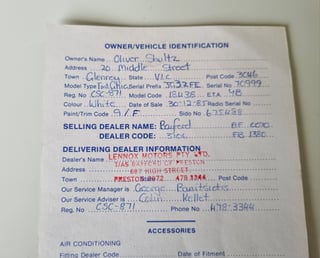 OWNER/VEHICLE IDENTIFICATION
Owner's Name Oliver Shultz
Address 20 Middle Street
Town Glenroy State VIC Post Code 3046
Model Type Serial Prefix Serial No.
Reg. No CSC-871 Model Code E.T.A. 4B
Colour White Date of Sale 30-12-85 Radio Serial No
Paint/Trim Code 9/F Sido No 675488
SELLING DEALER NAME: Bayford B.F.
DEALER CODE: FB 1380
DELIVERING DEALER INFORMATION
Dealer's Name LENNOX MOTORS PTY LTD.
Address T/AS BAYFORD OF PRESTON
687 HIGH STREET
Town PRESTON 3072 478 3344 Post Code
Our Service Manager is George
Our Service Adviser is Colin Kellet
Reg. No CSC-871 Phone No 478-3344
ACCESSORIES
AIR CONDITIONING
Fitting Dealer Code Date of Fitment